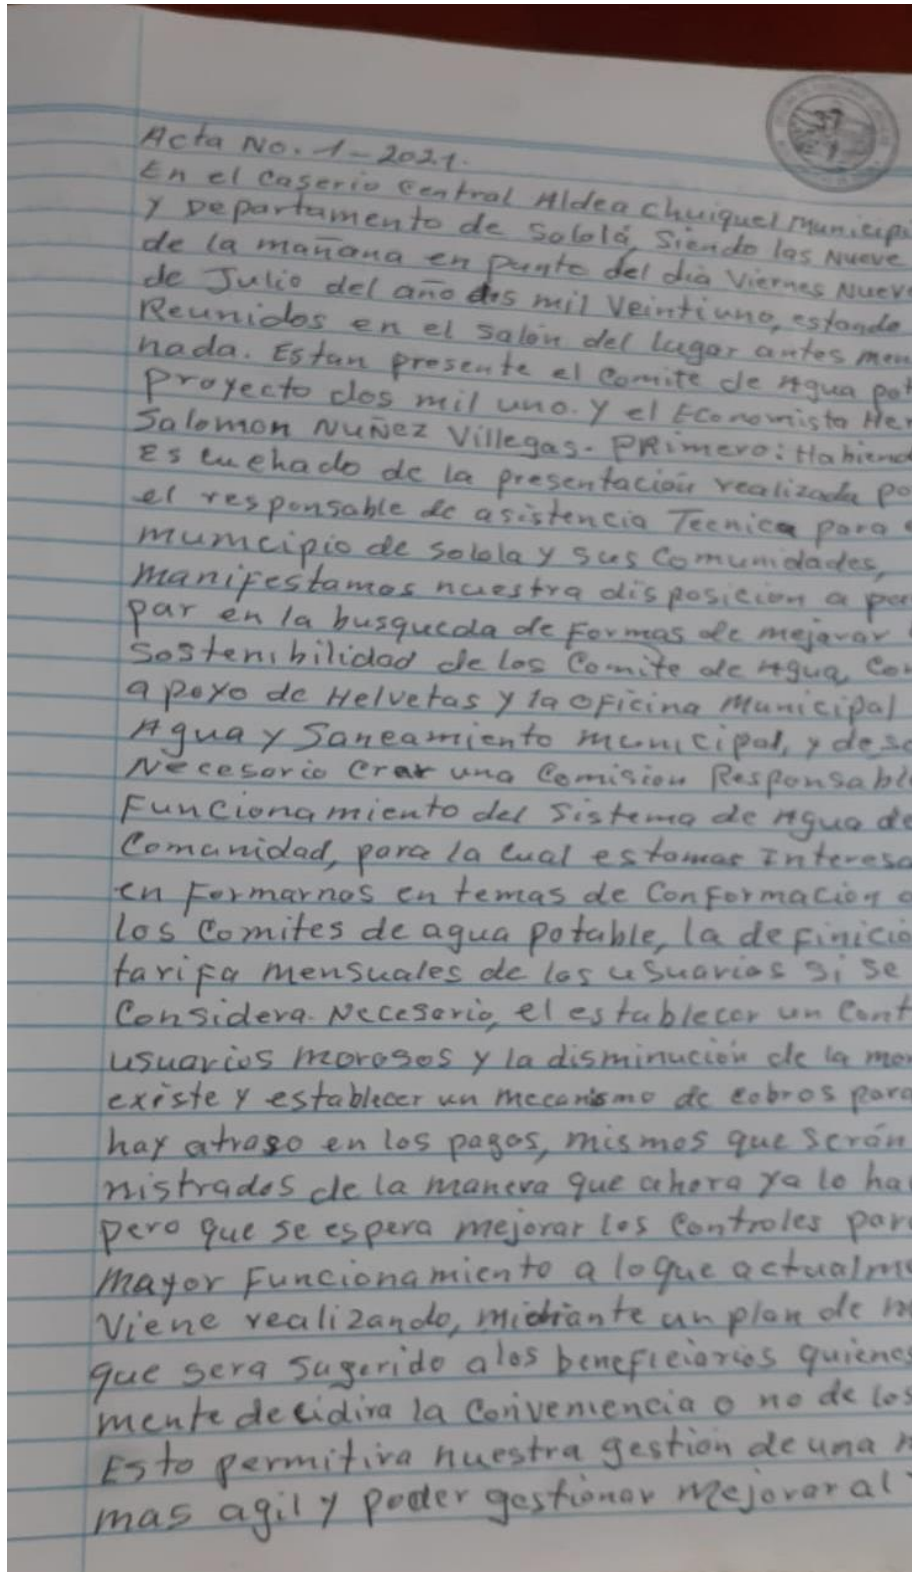 37
Acta No. 1-2021.
En el Caserio Central Aldea Chuiquel Municipi
y Departamento de Sololá, Siendo las Nueve
de la mañana en punto del dia Viernes Nuev
de Julio del año dos mil Veintiuno, estando
Reunidos en el salón del lugar antes men
nada. Estan presente el Comite de Agua pot
proyecto dos mil uno. y el Economista He
Salomon Nuñez Villegas. PRimero: Habiend
Escuchado de la presentación realizada po
el responsable de asistencia Tecnica para
municipio de Solola y sus Comunidades,
manifestamos nuestra disposicion a pa
par en la busqueda de Formas de mejorar
Sostenibilidad de los Comite de Agua, Con
apoyo de Helvetas y la oficina Municipal
Agua y Saneamiento municipal, y des
Necesario Crear una Comision Responsabl
Funcionamiento del Sistema de Agua de
Comunidad, para la cual estamos Interesa
en Formarnos en temas de Conformación
los Comites de agua potable, la definició
tarifa mensuales de los usuarios si se
Considera. Necesario, el establecer un Cont
usuarios morosos y la disminución de la mo
existe y establecer un mecanismo de cobros para
hay atraso en los pagos, mismos que serón
nistrados de la manera que ahora ya lo ha
pero que se espera mejorar los Controles par
mayor Funcionamiento a loque actualm
Viene realizando, midiante un plan de m
que sera sugerido alos beneficiarios quienes
mente decidira la Conveniencia o no de los
Esto permitira nuestra gestión de una
mas agil y poder gestionar mejorar al